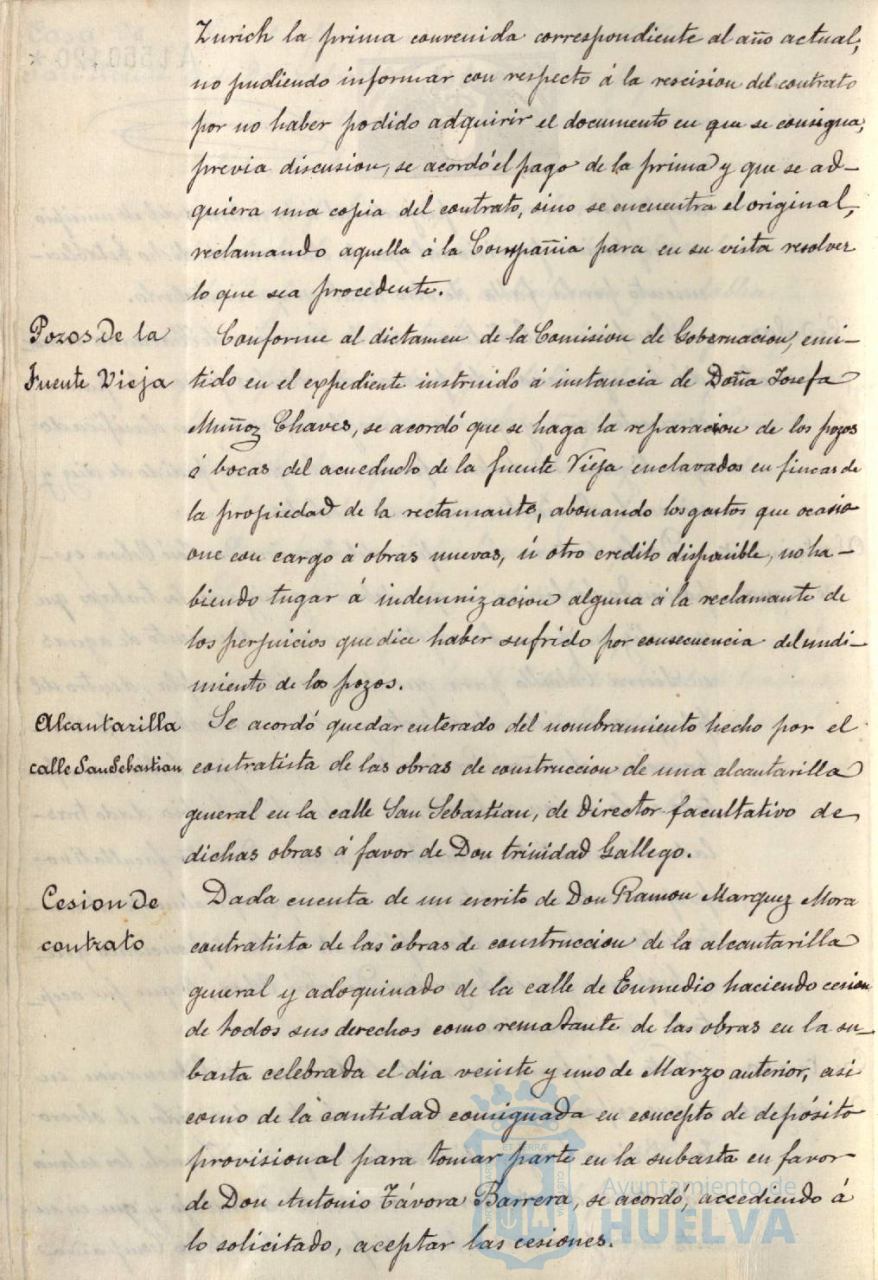 Zurich la prima convenida correspondiente al año actual,
no pudiendo informar con respecto á la rescision del contrato
por no haber podido adquirir el documento en que se consigna,
previa discusion, se acordó el pago de la prima y que se ad-
quiera una copia del contrato, sino se encuentra el original,
reclamando aquella á la Compañia para en su vista resolver
lo que sea procedente.
Pozos de la
Fuente Vieja
Conforme al dictamen de la Comision de Gobernacion, emi-
tido en el expediente instruido á instancia de Doña Josefa
Muñoz Chaves, se acordó que se haga la reparacion de los pozos
ó bocas del acueducto de la fuente Vieja enclavados en fincas de
la propiedad de la reclamante, abonando los gastos que ocasio
one con cargo á obras nuevas, ú otro credito disponible, no ha-
biendo lugar á indemnizacion alguna á la reclamante de
los perjuicios que dice haber sufrido por consecuencia del undi-
miento de los pozos.
Alcantarilla
calle San Sebastian
Se acordó quedar enterado del nombramiento hecho por el
contratista de las obras de construccion de una alcantarilla
general en la calle San Sebastian, de Director facultativo de
dichas obras á favor de Don trinidad Gallego.
Cesion de
contrato
Dada cuenta de un escrito de Don Ramon Marquez Mora
contratista de las obras de construccion de la alcantarilla
general y adoquinado de la calle de Enmedio haciendo cesion
de todos sus derechos como rematante de las obras en la su-
basta celebrada el dia veinte y uno de Marzo anterior, asi
como de la cantidad consignada en concepto de depósito
provisional para tomar parte en la subasta en favor
de Don Antonio Távora Barrera, se acordó, accediendo á
lo solicitado, aceptar las cesiones.
Ayuntamiento de
HUELVA